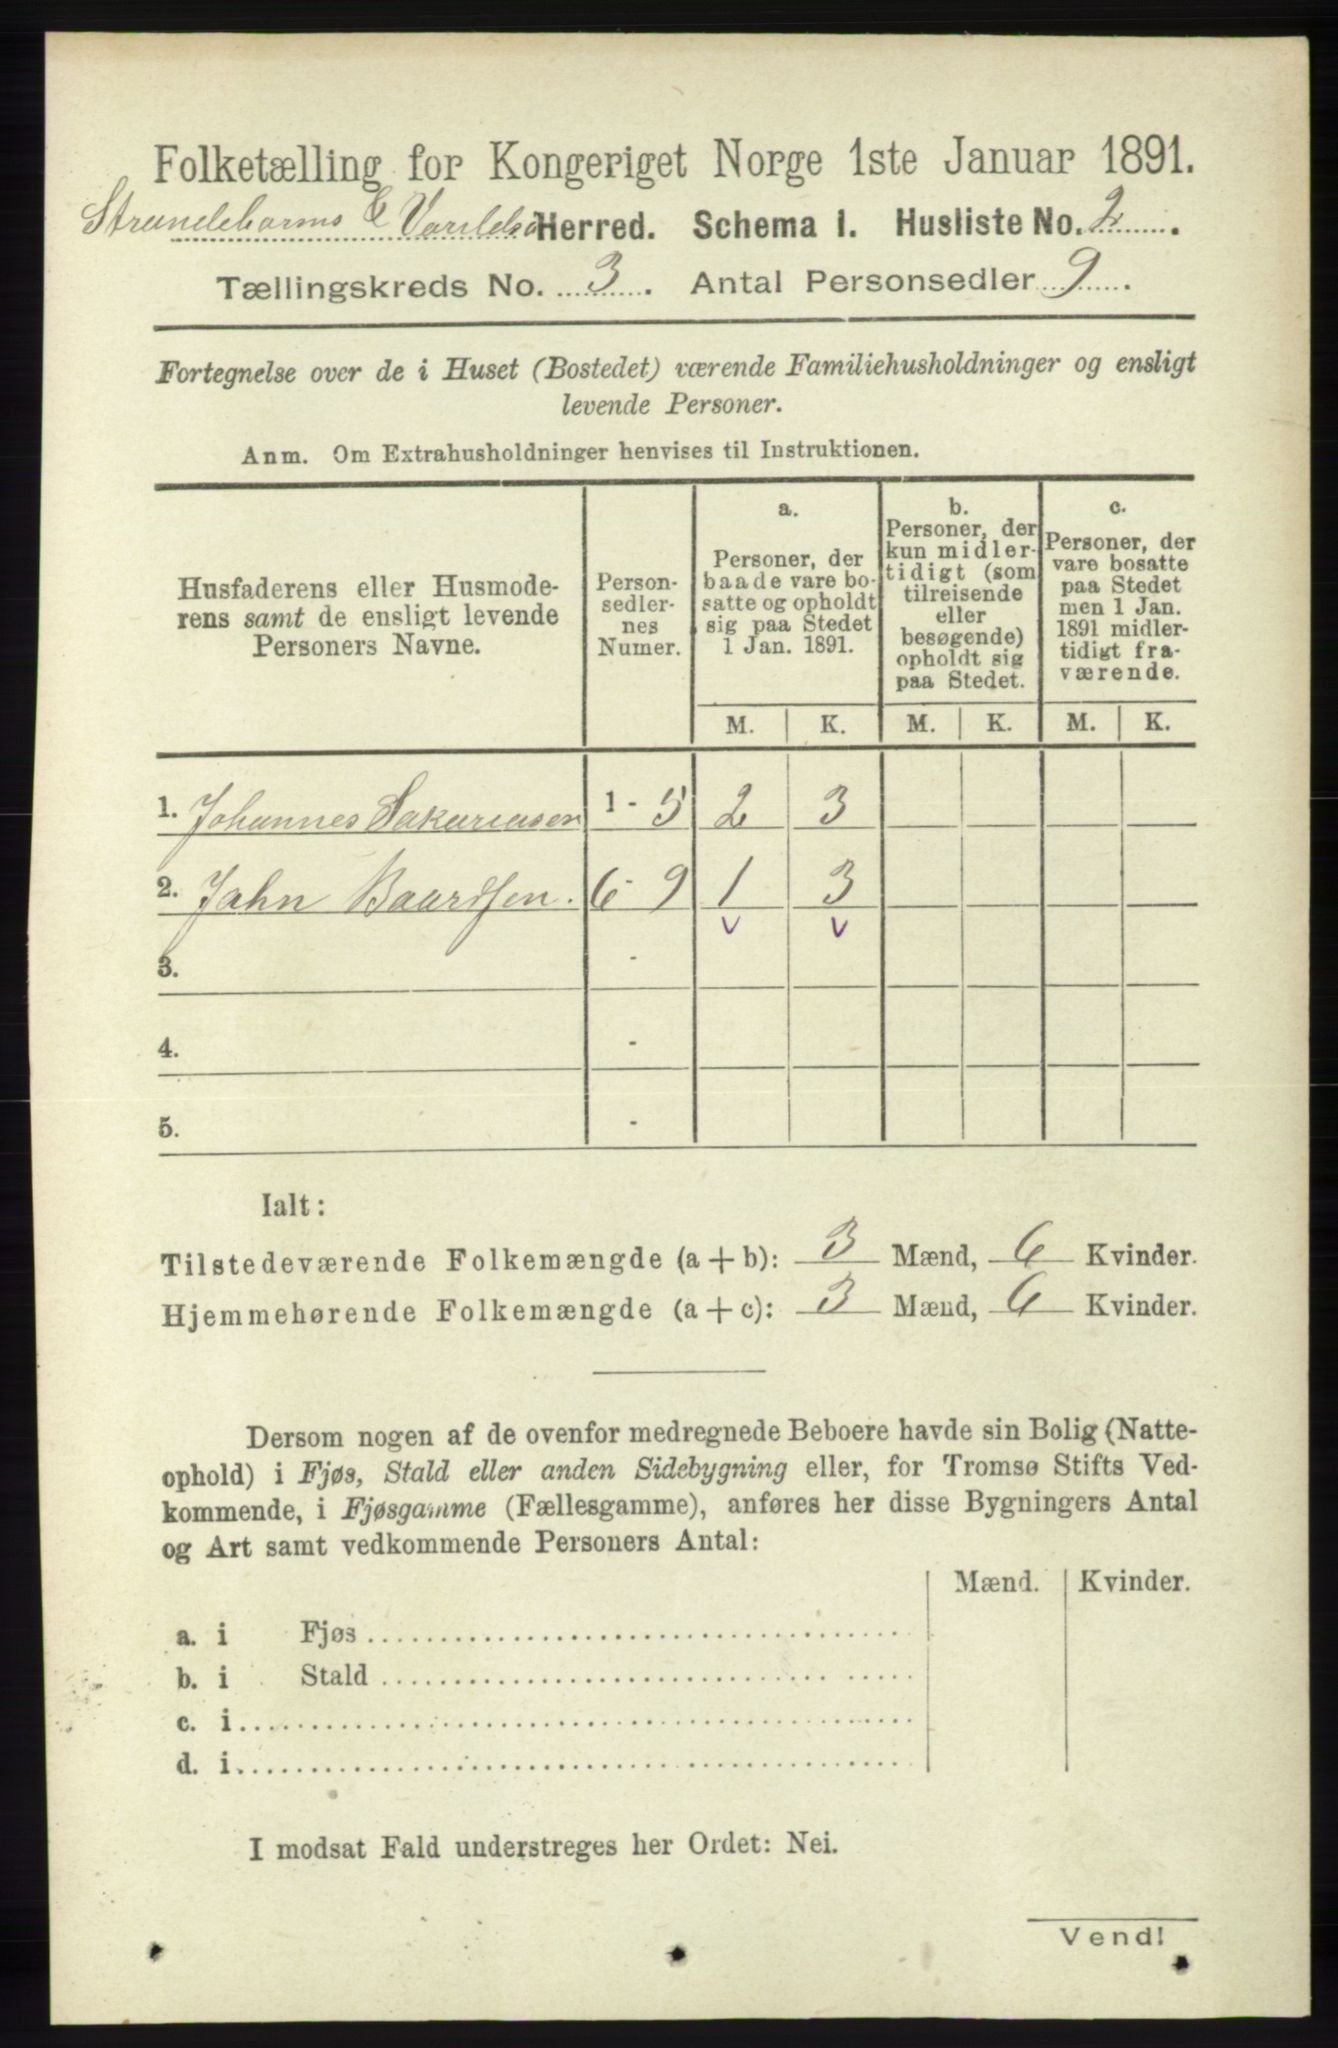 Folketælling for Kongeriget Norge 1ste Januar 1891.
Strandebarms & Varildsø Herred. Schema I. Husliste No. 2.
Tællingskreds No. 3. Antal Personsedler 9.
Fortegnelse over de i Huset (Bostedet) værende Familiehusholdninger og ensligt
levende Personer.
Anm. Om Extrahusholdninger henvises til Instruktionen.
Husfaderens eller Husmode-
rens samt de ensligt levende
Personers Navne.
Person-
sedler-
nes
Numer.
a.
Personer, der
baade vare bo-
satte og opholdt
sig paa Stedet
1 Jan. 1891.
b.
Personer, der
kun midler-
tidigt (som
tilreisende
eller
besøgende)
opholdt sig
paa Stedet.
c.
Personer, der
vare bosatte
paa Stedet
men 1 Jan.
1891 midler-
tidigt fra-
værende.
M. K. M. K. M. K.
1. Johannes Sakariasen 1 - 5 2 3
2. Jahn Baardsen. 6 - 9 1 3
v v
3. -
4. -
5. -
Ialt:
Tilstedeværende Folkemængde (a + b): 3 Mænd, 6 Kvinder.
Hjemmehørende Folkemængde (a + c): 3 Mænd, 6 Kvinder.
Dersom nogen af de ovenfor medregnede Beboere havde sin Bolig (Natte-
ophold) i Fjøs, Stald eller anden Sidebygning eller, for Tromsø Stifts Ved-
kommende, i Fjøsgamme (Fællesgamme), anføres her disse Bygningers Antal
og Art samt vedkommende Personers Antal:
Mænd. Kvinder.
a. i Fjøs
b. i Stald
c. i
d. i
I modsat Fald understreges her Ordet: Nei.
Vend!